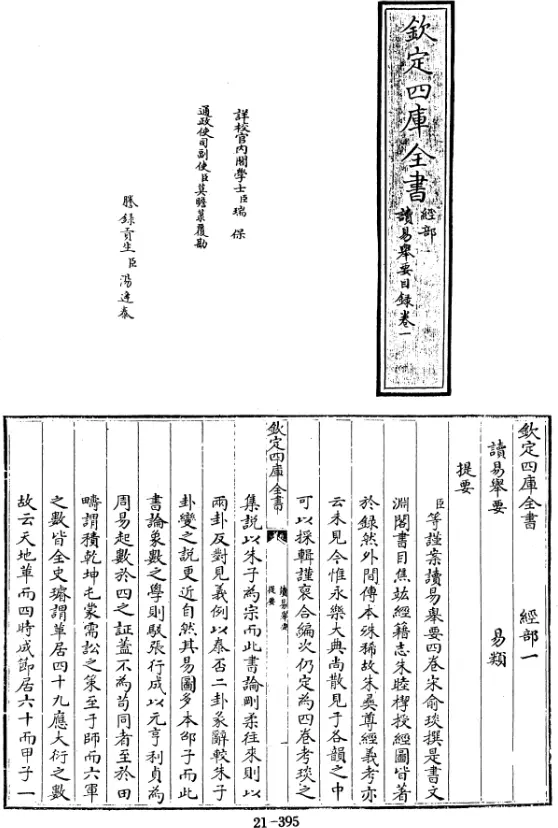 欽定四庫全書
經部一
讀易舉要目録卷一
詳校官内閣學士臣瑞保
通政使司副使臣莫瞻菉覆勘
謄録貢生臣馮逢泰
欽定四庫全書 經部一
讀易舉要 易類
提要
臣等謹案讀易舉要四卷宋俞琰撰是書文
淵閣書目焦竑經籍志朱睦㮮授經圖皆著
於録然外間傳本殊稀故朱彝尊經義考亦
云未見今惟永樂大典尚散見于各韻之中
可以採輯謹裒合編次仍定為四卷考琰之
欽定四庫全書
讀易舉要
提要
一
集説以朱子為宗而此書論剛柔往來則以
兩卦反對見義例以泰否二卦彖辭較朱子
卦變之説更近自然其易圖多本邵子而此
書論象數之學則駁張行成以元亨利貞為
周易起數於四之証蓋不為苟同者至於田
疇謂積乾坤屯蒙需訟之策至于師而六軍
之數皆全史璿謂革居四十九應大衍之數
故云天地革而四時成節居六十而甲子一
21-395